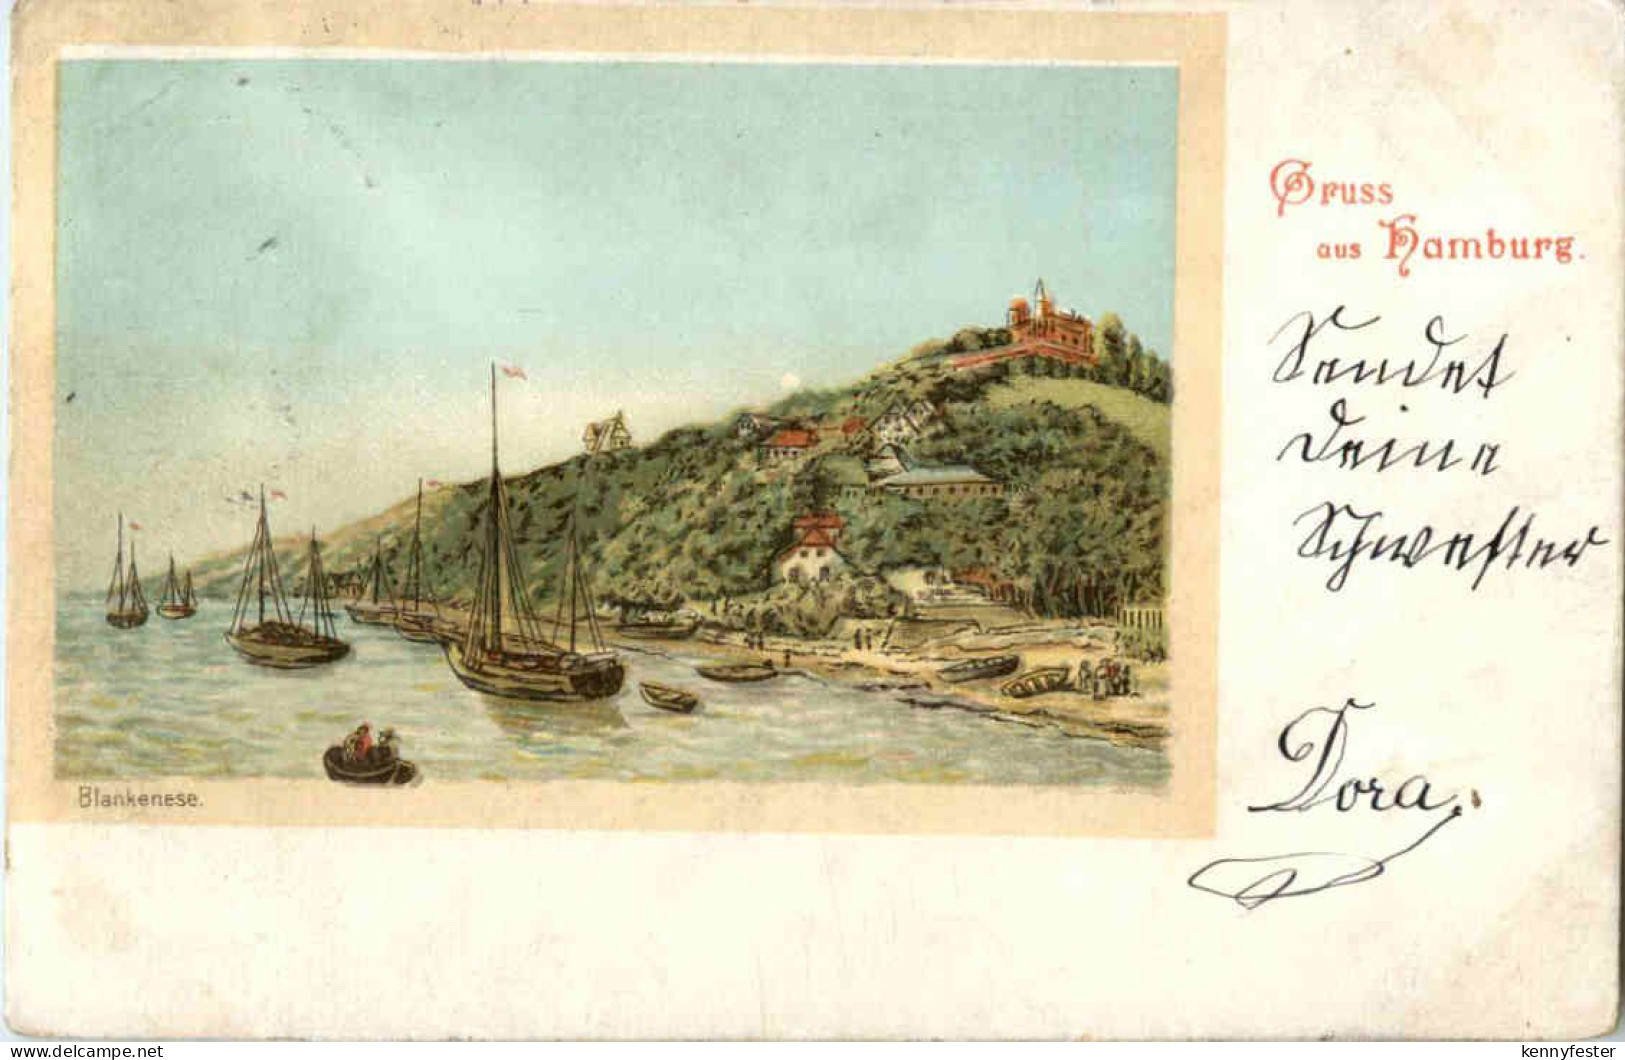 Gruss
aus Hamburg.
Sendet
Deine
Schwester
Dora.
Blankenese.
delcampe.net
kennyfester